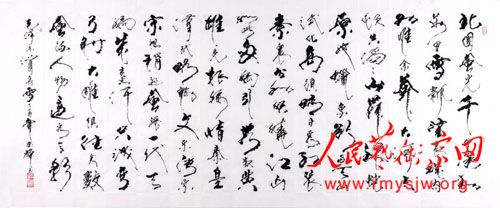 北国風光千里冰封
万里雪飘望长城内
外惟余莽莽大河上下
顿失滔滔山舞银蛇
原驰蜡象欲与天公
试比高须晴日看红装
素裹分外妖娆江山
如此多娇引无数英
雄竞折腰惜秦皇
汉武略输文采唐宗
宋祖稍逊風骚一代天
骄成吉思汗只识弯
弓射大雕俱往矣数
風流人物还看今朝
人民艺术家网
www.rmysjw.org